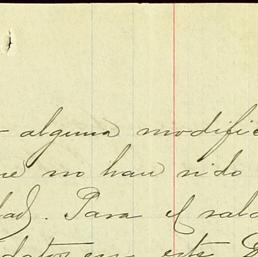 alguna modific
ue no han sido
dad. Para el
datos en este